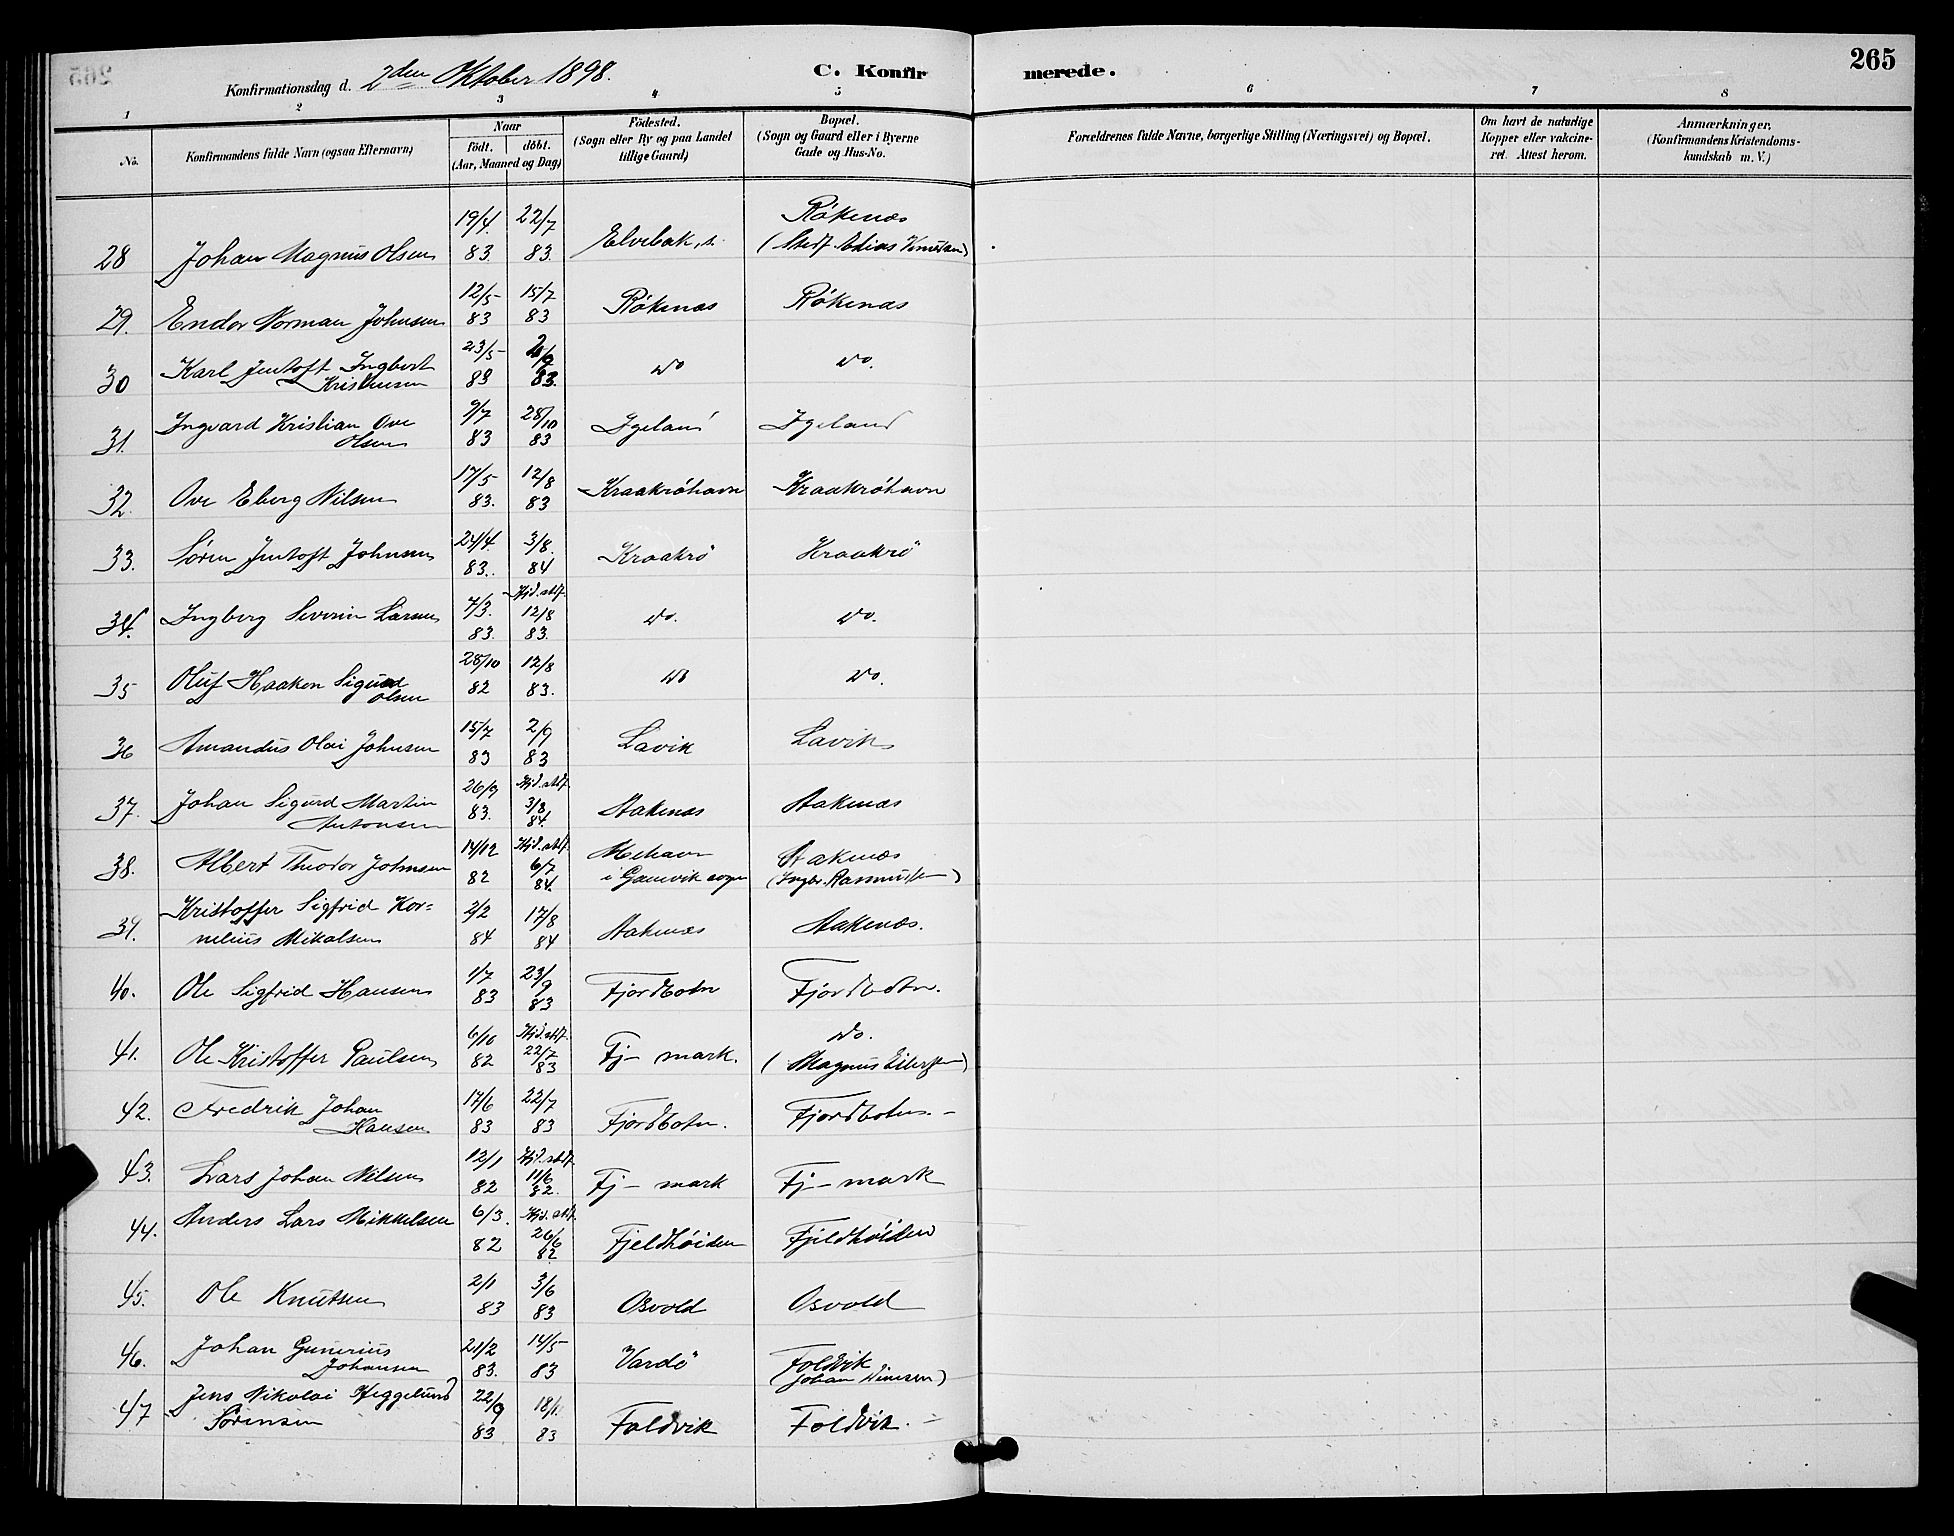 265
Konfirmationsdag d. 2den Oktober 1898.
C. Konfirmerede.
1 2 3 4 5 6 7 8
No.
Konfirmandens fulde Navn (ogsaa Efternavn)
Naar
födt. döbt.
(Aar, Maaned og Dag)
Födested.
(Sogn eller By og paa Landet
tillige Gaard)
Bopæl.
(Sogn og Gaard eller i Byerne
Gade og Hus-No.
Forældrenes fulde Navne, borgerlige Stilling (Næringsvei) og Bopæl.
Om havt de naturlige
Kopper eller vakcine-
ret. Attest herom.
Anmærkninger.
(Konfirmandens Kristendoms-
kundskab m. V.)
28 Johan Magnus Olsen 19/4. 83. 22/7 83. Elvebak, Rökenes
(Stedf. Edias Knutsen)
29. Endor Norman Johnsen 12/5 83 15/7 83 Rökenæs Rökenæs
30 Karl Jentoft Ingbert
Kristensen 23/5 83 2/9 83. do do.
31. Ingvard Kristian Ove
Olsen 9/7 83 28/10 83 Igeland Igeland
32. Ove Eberg Nilsen 17/5 83. 12/8 83 Kraakröhavn Kraakröhavn
33. Sören Jentoft Johnsen 24/4 83. 3/8. 84 Kraakrö Kraakrö
34. Ingberg Severin Larsen 7/3. 83. Hjd. stdf. 12/8 83. do. do.
35 Oluf Haakon Sigurd
Olsen 28/10 82 12/8 83. do do.
36 Amandus Olai Johnsen 15/7 83 2/9 83 Lavik Lavik
37. Johan Sigurd Martin
Antonsen 26/9 83. Hjd. stdf. 3/8 84. Aakenæs Aakenæs
38. Albert Theodor Johnsen 14/12 82 Hjd. stdf. 6/7 84. Mehavn
i Gamvik sogn Aakenæs
(Ingbr. Rasmussen)
39. Kristoffer Sigfrid Kor=
nelius Mikalsen 2/2 84 17/8 84 Aakenæs Aakenæs.
40. Ole Sigfrid Hansen 1/7 83 23/9 83 Fjordbotn Fjordbotn.
41. Ole Kristoffer Paulsen 6/10 82 Hjd. stdf. 22/7 83 Fj- mark. do.
(Magnus Eilertsen)
42. Fredrik Johan
Hansen 17/6 83 22/7 83 Fjordbotn. Fjordbotn. -
43. Lars Johan Nilsen 12/1 82 Hjd. stdf. 11/6 82. Fj- mark Fj- mark
44. Anders Lars Mikkelsen 6/3. 82 Hjd. stdf. 26/6 82. Fjeldhöiden Fjeldhöiden
45. Ole Knutsen 2/1 83 3/6 83 Osvold Osvold
46. Johan Gunerius
Johansen 21/2 83. 14/5 83 Vardö Foldvik
(Johan Dinesen)
47 Jens Nikolai Heggelund
Sörensen 22/9 83 18/11 83 Foldvik Foldvik. -